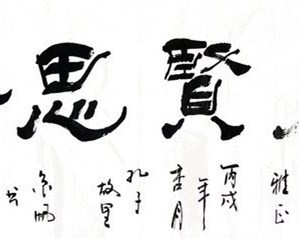 賢思
雅正
丙戌
年
杏月
孔子
故里
书